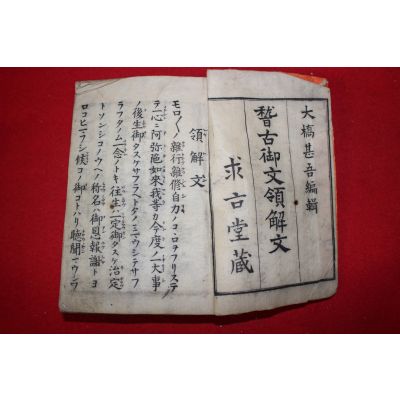 大橋甚吾編輯
稽古御文領解文
求古堂蔵
領解文
モロ〳〵ノ雜行雜修自力ノコヽロヲフリステ
テ一心ニ阿弥陀如来我等カ今度ノ一大事
ノ後生御タスケサフラヘトタノミマウシテサフ
ラフタノム一念ノトキ往生一定御タスケ治定
トソンシコノウヘノ称名ハ御恩報謝トヨ
ロコヒマウシ候コノ御コトハリ聴聞マウシワ